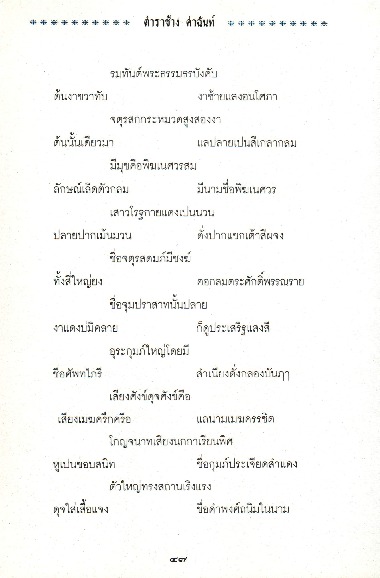 ตำราช้าง คำฉันท์
รมทันต์พระธรรมธรบังคับ
ต้นงาขวาทับ งาซ้ายแลงอนโศภา
จตุรสกกระหมวดสูงสองงา
ต้นนั้นเดียวมา แลปลายเปนสี่เกลากลม
มีมุขคือพิฆเนศวรสม
ลักษณ์เลิดตัวกลม มีนามชื่อพิฆเนศวร
เสาวโรฐกายแดงเปนนวน
ปลายปากเม้นมวน ดั่งปากแขกเต้าสีผจง
ชื่อจตุรลดมภ์มีขงฆ์
ทั้งสี่ใหญ่ยง ดอกลมตระศักดิ์พรรณราย
ชื่อจุมปราสาทนั้นปลาย
งาแดงบมิคลาย ก็ดูประเสริฐแสงสี
อุระกุมภ์ใหญ่โดยมี
ชื่อศัพทไภรี สำเนียงดั่งกลองบันฦๅ
เสียงศังข์ดุจศังข์คือ
เสียงเมฆครึกครือ แลนามเมฆครรชิต
โกญจนาทเสียงนกกาเรียนพิศ
หูเปนขอบสนิท ชื่อกุมภ์ประเจียดสำแดง
ตัวใหญ่ทรงสถานเริงแรง
ดุจใส่เสื้อแจง ชื่อดำพงศ์ถนิมในนาม
๔๗